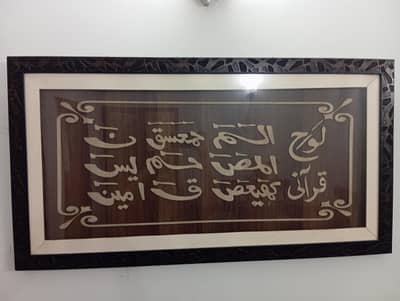 لوح الم حمعسق ن
المص یس
قرآنی کھیعص ق آمین